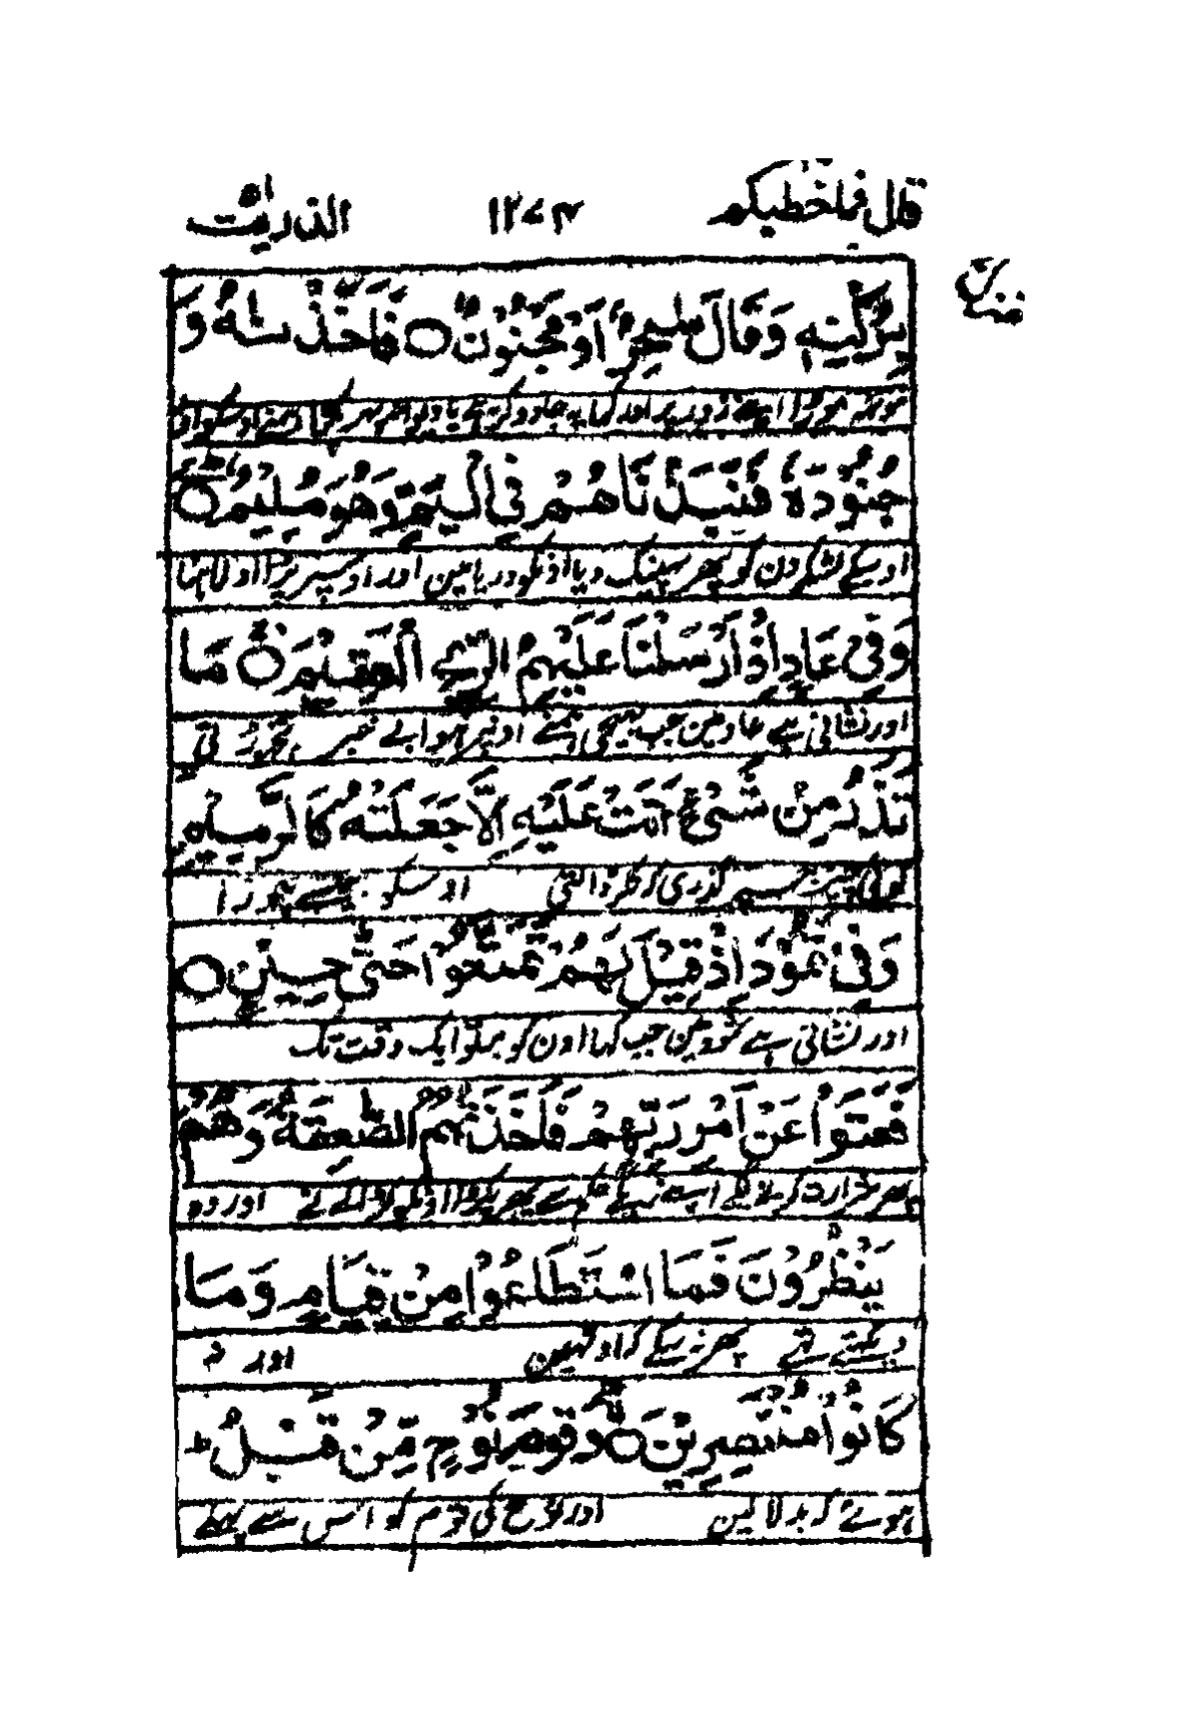 قال فما خطبكم ١٢٧٤ الذٰریٰت
بِرُكْنِهٖ وَقَالَ سٰحِرٌ اَوْ مَجْنُوْنٌ ○ فَاَخَذْنٰهُ وَ
اپنے زور پر اور کہا یہ جادوگر ہے یا دیوانہ پھر پکڑا ہمنے اوسکو اور
جُنُوْدَهٗ فَنَبَذْنَاهُمْ فِى الْيَمِّ وَهُوَ مُلِيْمٌ ○
اوسکے لشکرون کو پھر پھینک دیا اونکو دریا مین اور اوسپر پڑا اولاہنا
وَفِىْ عَادٍ اِذْ اَرْسَلْنَا عَلَيْهِمُ الرِّيْحَ الْعَقِيْمَ ○ مَا
اور نشانی ہے عاد مین جب بھیجی ہمنے اونپر ہوا بے خیر نہ چھوڑتی
تَذَرُ مِنْ شَىْءٍ اَتَتْ عَلَيْهِ اِلَّا جَعَلَتْهُ كَالرَّمِيْمِ
کوئی چیز جسپر گذری کہ نکر ڈالتی اوسکو جیسے چورا
وَفِىْ ثَمُوْدَ اِذْ قِيْلَ لَهُمْ تَمَتَّعُوْا حَتّٰى حِيْنٍ ○
اور نشانی ہے ثمود مین جب کہا اون کو برتو ایک وقت تک
فَعَتَوْا عَنْ اَمْرِ رَبِّهِمْ فَاَخَذَتْهُمُ الصّٰعِقَةُ وَهُمْ
پھر شرارت کرنے لگے اپنے رب کے حکم سے پھر پکڑا اونکو کڑاکے نے اور وہ
يَنْظُرُوْنَ فَمَا اسْتَطَاعُوْا مِنْ قِيَامٍ وَمَا
دیکھتے تھے پھر نہ سکے کہ اوٹھین اور نہ
كَانُوْا مُنْتَصِرِيْنَ ○ وَقَوْمَ نُوْحٍ مِّنْ قَبْلُ ط
ہوئے کہ بدلا لین اور نوح کی قوم کو اس سے پہلے